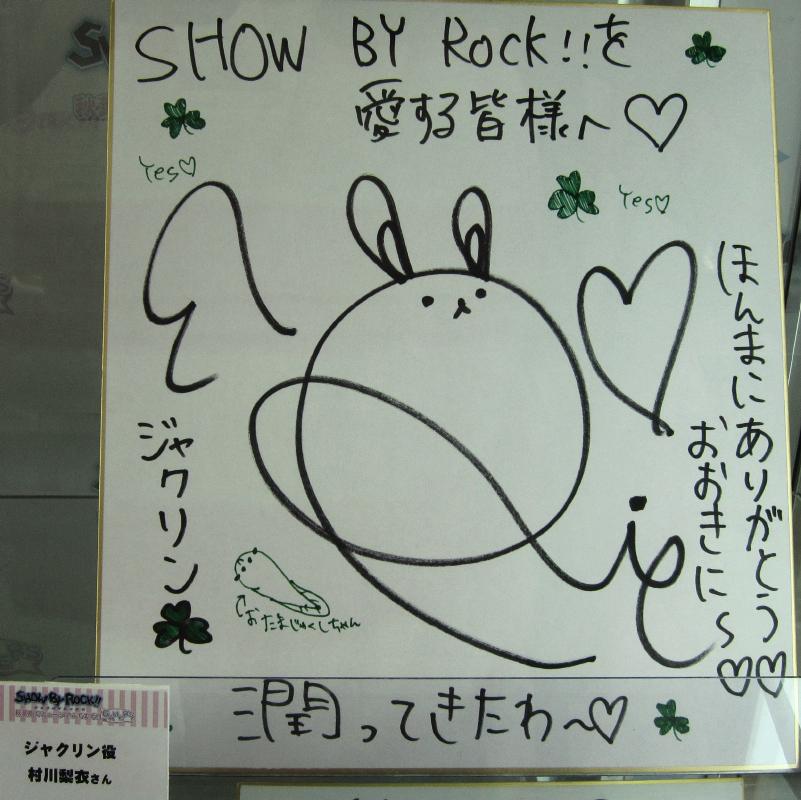 SHOW BY Rock!!を
愛する皆様へ♡
Yes♡
Yes♡
ほんまにありがとう
おおきに〜♡♡
ジャクリン
おたまじゃくしちゃん
潤ってきたわ〜♡
SHOW BY ROCK!!
ジャクリン役
村川梨衣さん